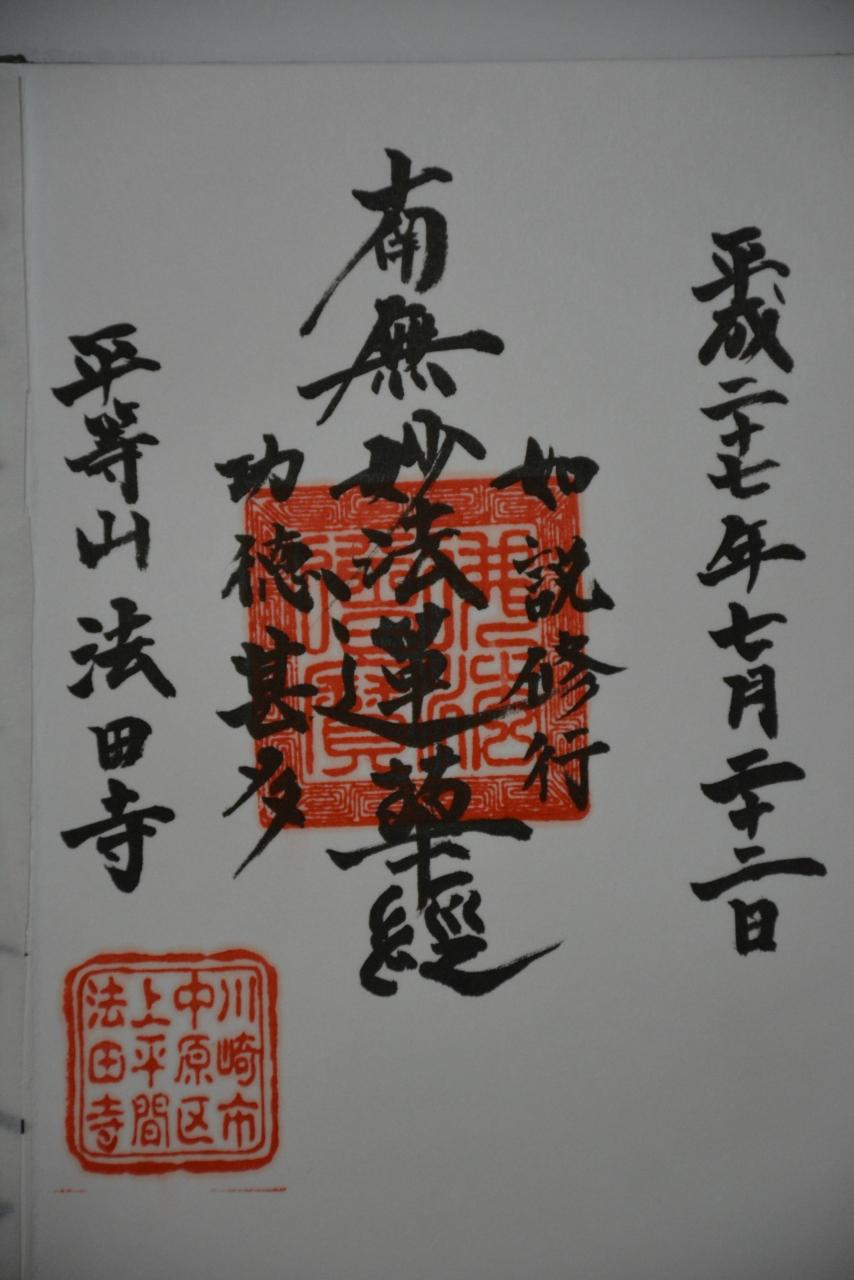 平成二十七年七月二十二日
如説修行
南無妙法蓮華經
功徳甚多
平等山法田寺
佛法僧寳
川崎市
中原区
上平間
法田寺